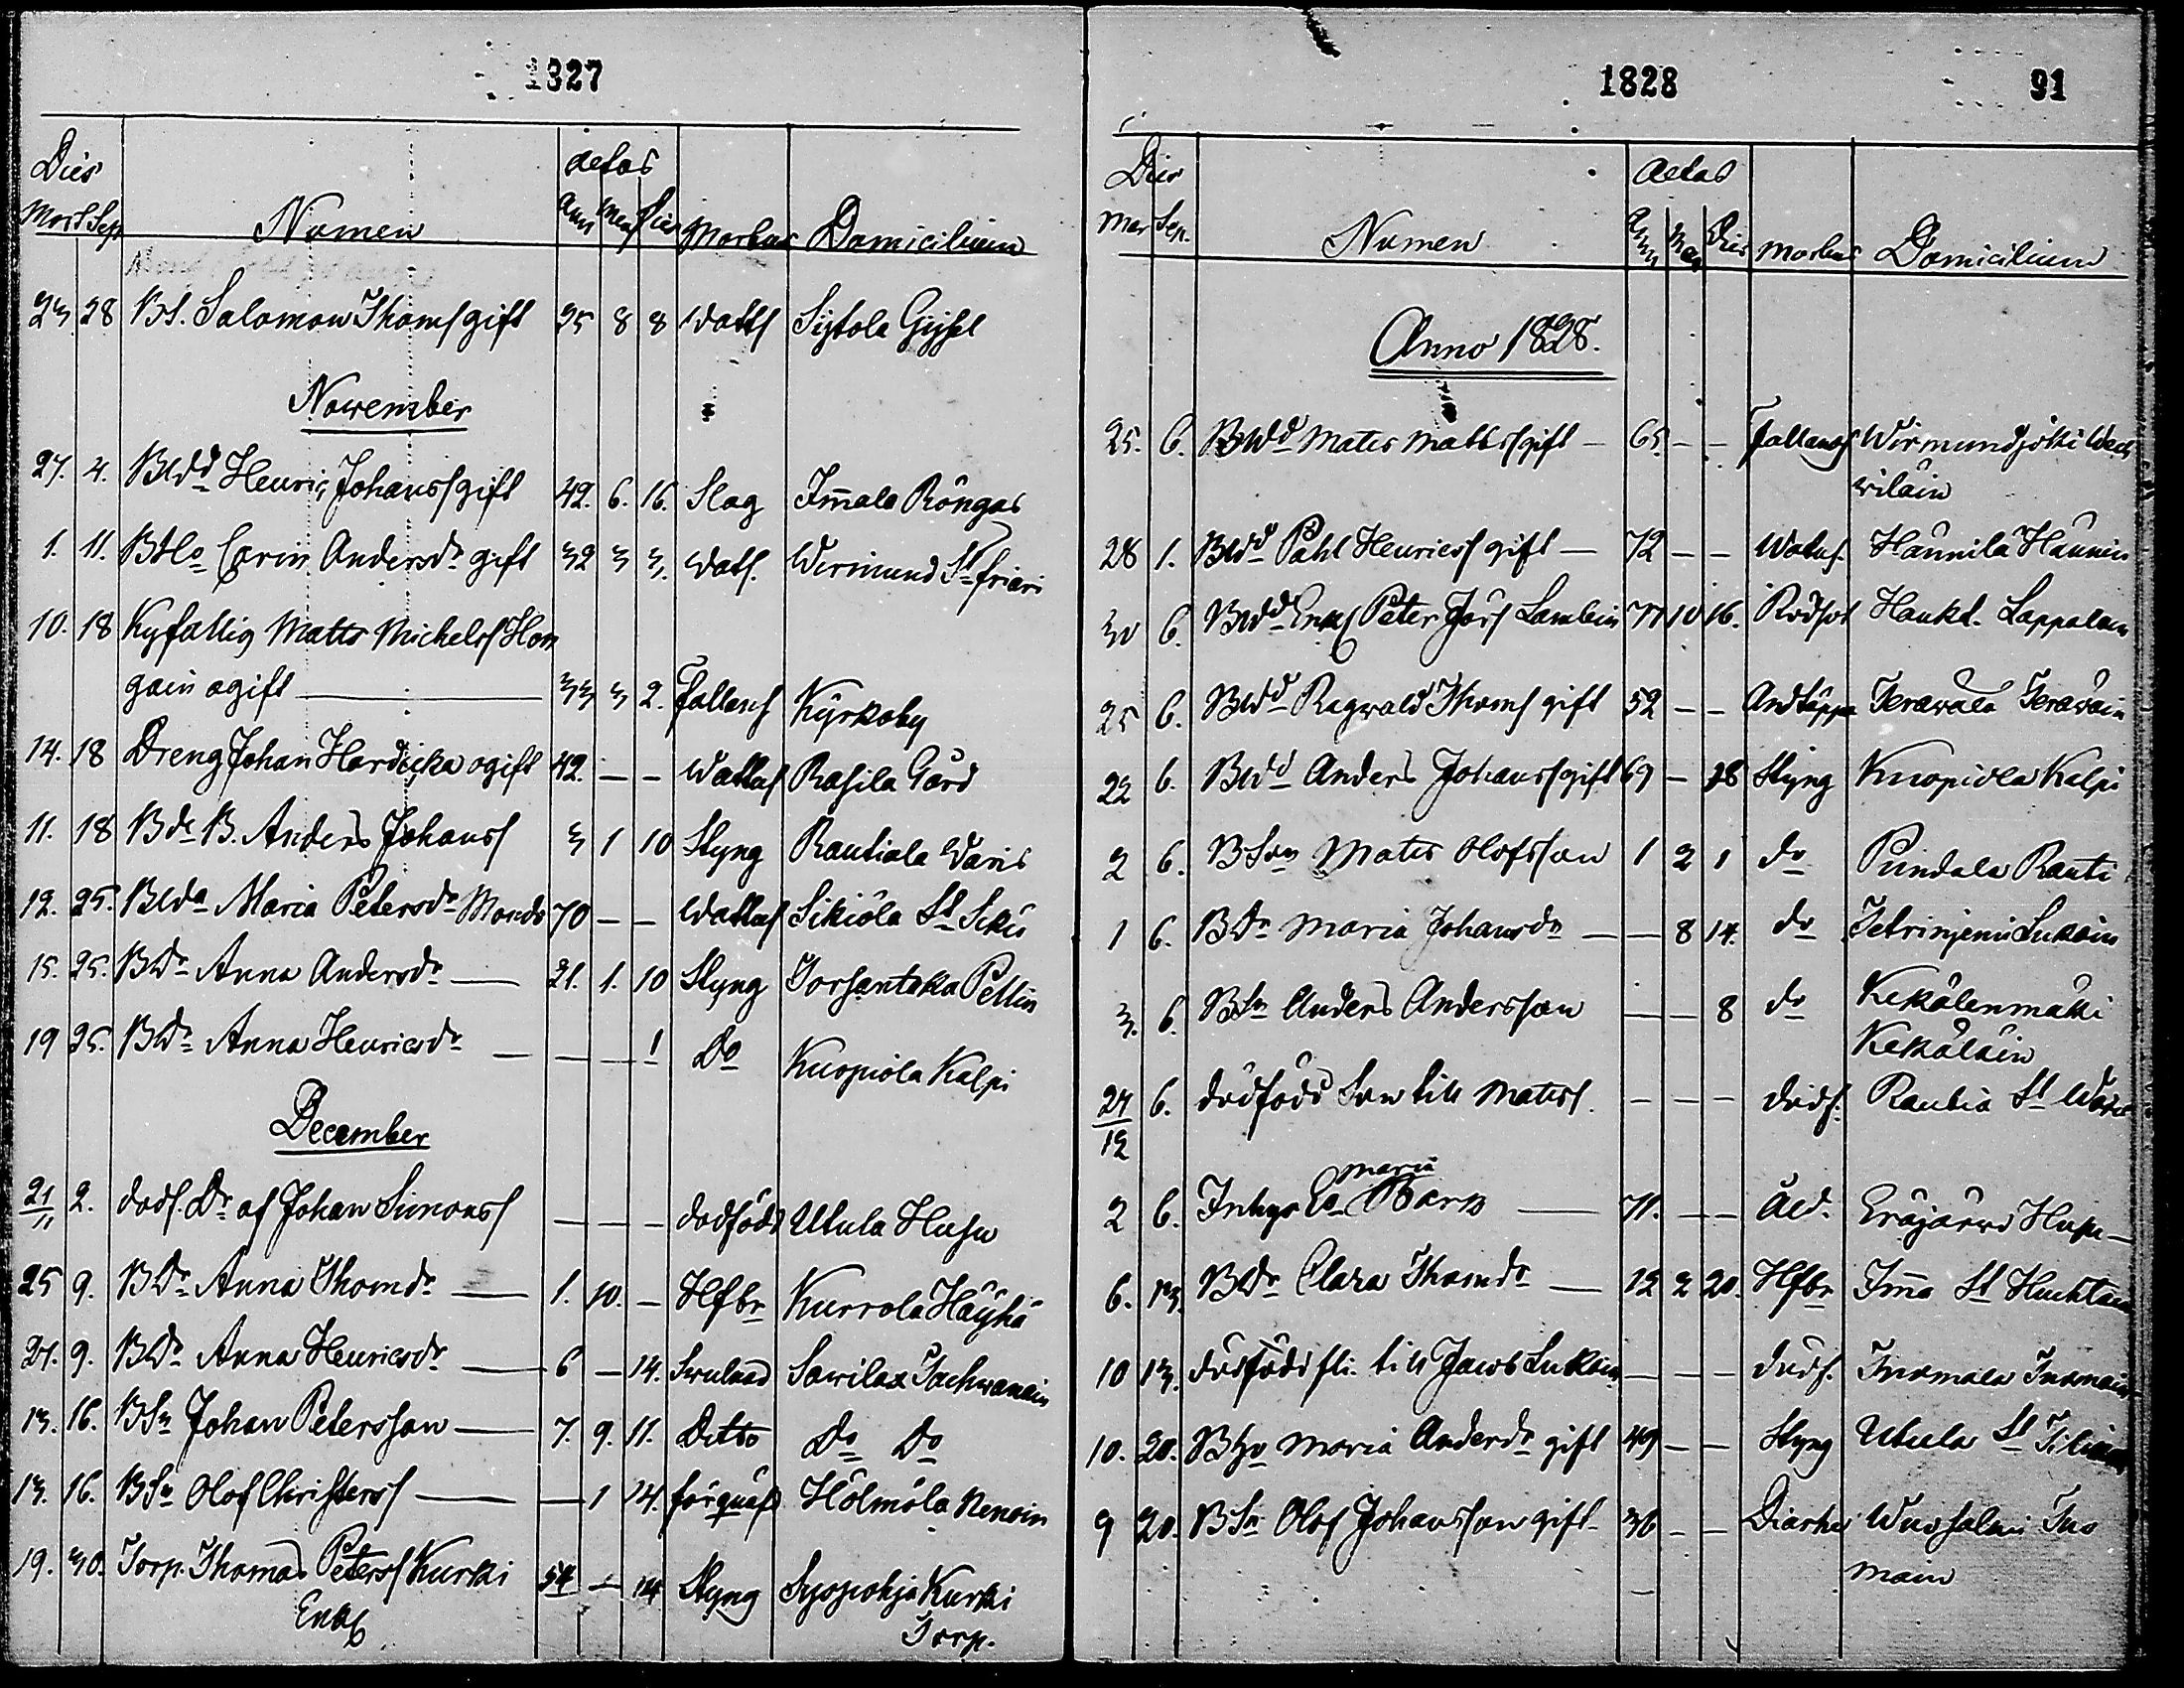 1827
Dies aetas
Mort Sep Nomen Ann Men Dies Morbus Domicilium
23 28 BS. Salomon Thoms gift 25 8 8 Watts Sijtola Gijsel
November
27. 4. BWd Henric Johanss gift 42. 6. 16. Slag Imala Röngas
1. 11. BHo Carin Andersdr gift 32 3 3. Wats. Wirmund St
10. 18 Matts Michelss Hon
gain ogift — 33 3 2. Fallands Kÿrkoby
14. 18 Dreng Johan Hardicka ogift 42. — — Wattus Rasila Gård
11. 18 BdrB. Anders Johanss 3 1 10 Styng Rautiala Waris
12. 25. BWda Maria Petersdr 70 — — Wattus Sikiöla St
15. 25. BDr Anna Andersdr — 21. 1. 10 Styng Torsantaka Pellin
19 25. BDr Anna Henricsdr — — — 1 Do Kuopiola Kalpi
December
21/11 2. dödf. Dr af Johan Simonss — — — dödföd Utula Husu
25 9. BDr Anna Thomdr — 1. 10. — Hfbr Kurrola Häyhä
21. 9. BDr Anna Henricsdr — 6 — 14. Swulnad Sawilax
13. 16. BSn Johan Petersson — 7. 9. 11. Ditto Do Do
13. 16. BSn Olof Christerss — — 1 14. förquäfd Hölmölä Nenoin
19. 30. Torp. Thomas Peterss Kurki 54 — 14 Styng Kurki
Enkl Torp.
1828 91
Dies Aetas
Mor Sep. Nomen Ann Men Dies Morbus Domicilium
Anno 1828.
25. 6. BWd Mats Mattss gift — 65. — — Fallands Wirmundjoki
28 1. BWd Påhl Henricss gift — 72 — — Watus. Hännilä Hännin
30 6. BWd Enkl Peter Jörs 77 10 16. Rödsot Haukt. Lappalain
25 6. BWd Ragwald Thoms gift 52 — — Andtäppa Terawala Terawain
22 6. BWd Anders Johanss gift 69 — 28 Styng Kuopiola Kalpi
2 6. BSon Mats Olofsson 1 2 1 do Pundala Rauti
1 6. BDr Maria Johansdr — — 8 14. do Tetrinjemi Lukkain
3. 6. BSn Anders Andersson — — 8 do Kekälenmäki
Kekäläin
24/12 6. dödfödd Son till Matts. — — — dödf. Rautia St
2 6. Inhys Ea Maria — 71. — — Åld. Eräjärwi Hupu —
6. 13. BDr Clara Thomdr — 12 2 20. Hfbr Imma St Huchtain
10 13. dödfödd fli. till Jacob Lukkain — — — dödf. Inomala Inomain
10. 20. BHo Maria Anderdr gift 49 — — Styng Utula St
9 20. BSn Olof Johansson gift — 36 — — Diarhe Wuosalmi Ino
main